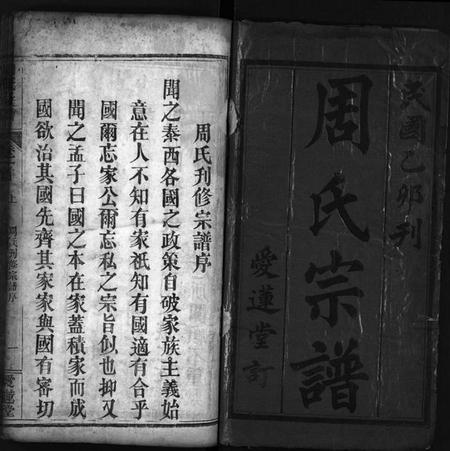 民國乙卯刊
周氏宗譜
愛蓮堂訂
周氏刋修宗譜序
聞之泰西各國之政策自破家族主義始
意在人不知有家祇知有國適有合乎
國爾忘家公爾忘私之宗旨似也抑又
聞之孟子曰國之本在家蓋積家而成
國欲治其國先齊其家家與國有審切
周氏刋修宗譜序
愛蓮堂